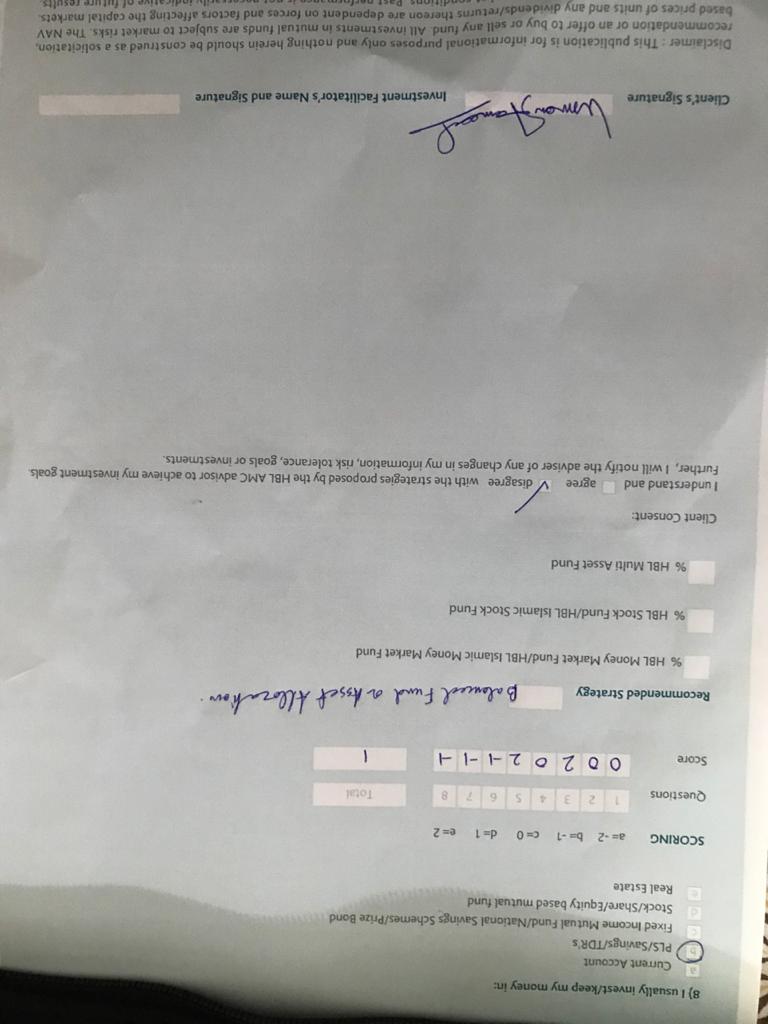 8) I usually invest/keep my money in:
a Current Account
b PLS/Savings/TDR's
c Fixed Income Mutual Fund/National Savings Schemes/Prize Bond
d Stock/Share/Equity based mutual fund
e Real Estate
SCORING a= -2 b= -1 c= 0 d= 1 e= 2
Questions 1 2 3 4 5 6 7 8 Total
Score 0 0 2 0 2 -1 -1 -1 1
Recommended Strategy Balanced Fund or Asset Allocation.
% HBL Money Market Fund/HBL Islamic Money Market Fund
% HBL Stock Fund/HBL Islamic Stock Fund
% HBL Multi Asset Fund
Client Consent:
I understand and agree disagree with the strategies proposed by the HBL AMC advisor to achieve my investment goals.
Further, I will notify the adviser of any changes in my information, risk tolerance, goals or investments.
Client's Signature Investment Facilitator's Name and Signature
Disclaimer : This publication is for informational purposes only and nothing herein should be construed as a solicitation,
recommendation or an offer to buy or sell any fund. All investments in mutual funds are subject to market risks. The NAV
based prices of units and any dividends/returns thereon are dependent on forces and factors affecting the capital markets.
conditions. Past performance is not necessarily indicative of future results.